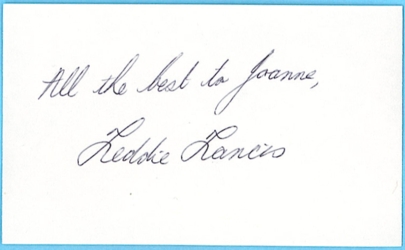 All the best to Joanne,
Freddie Francis